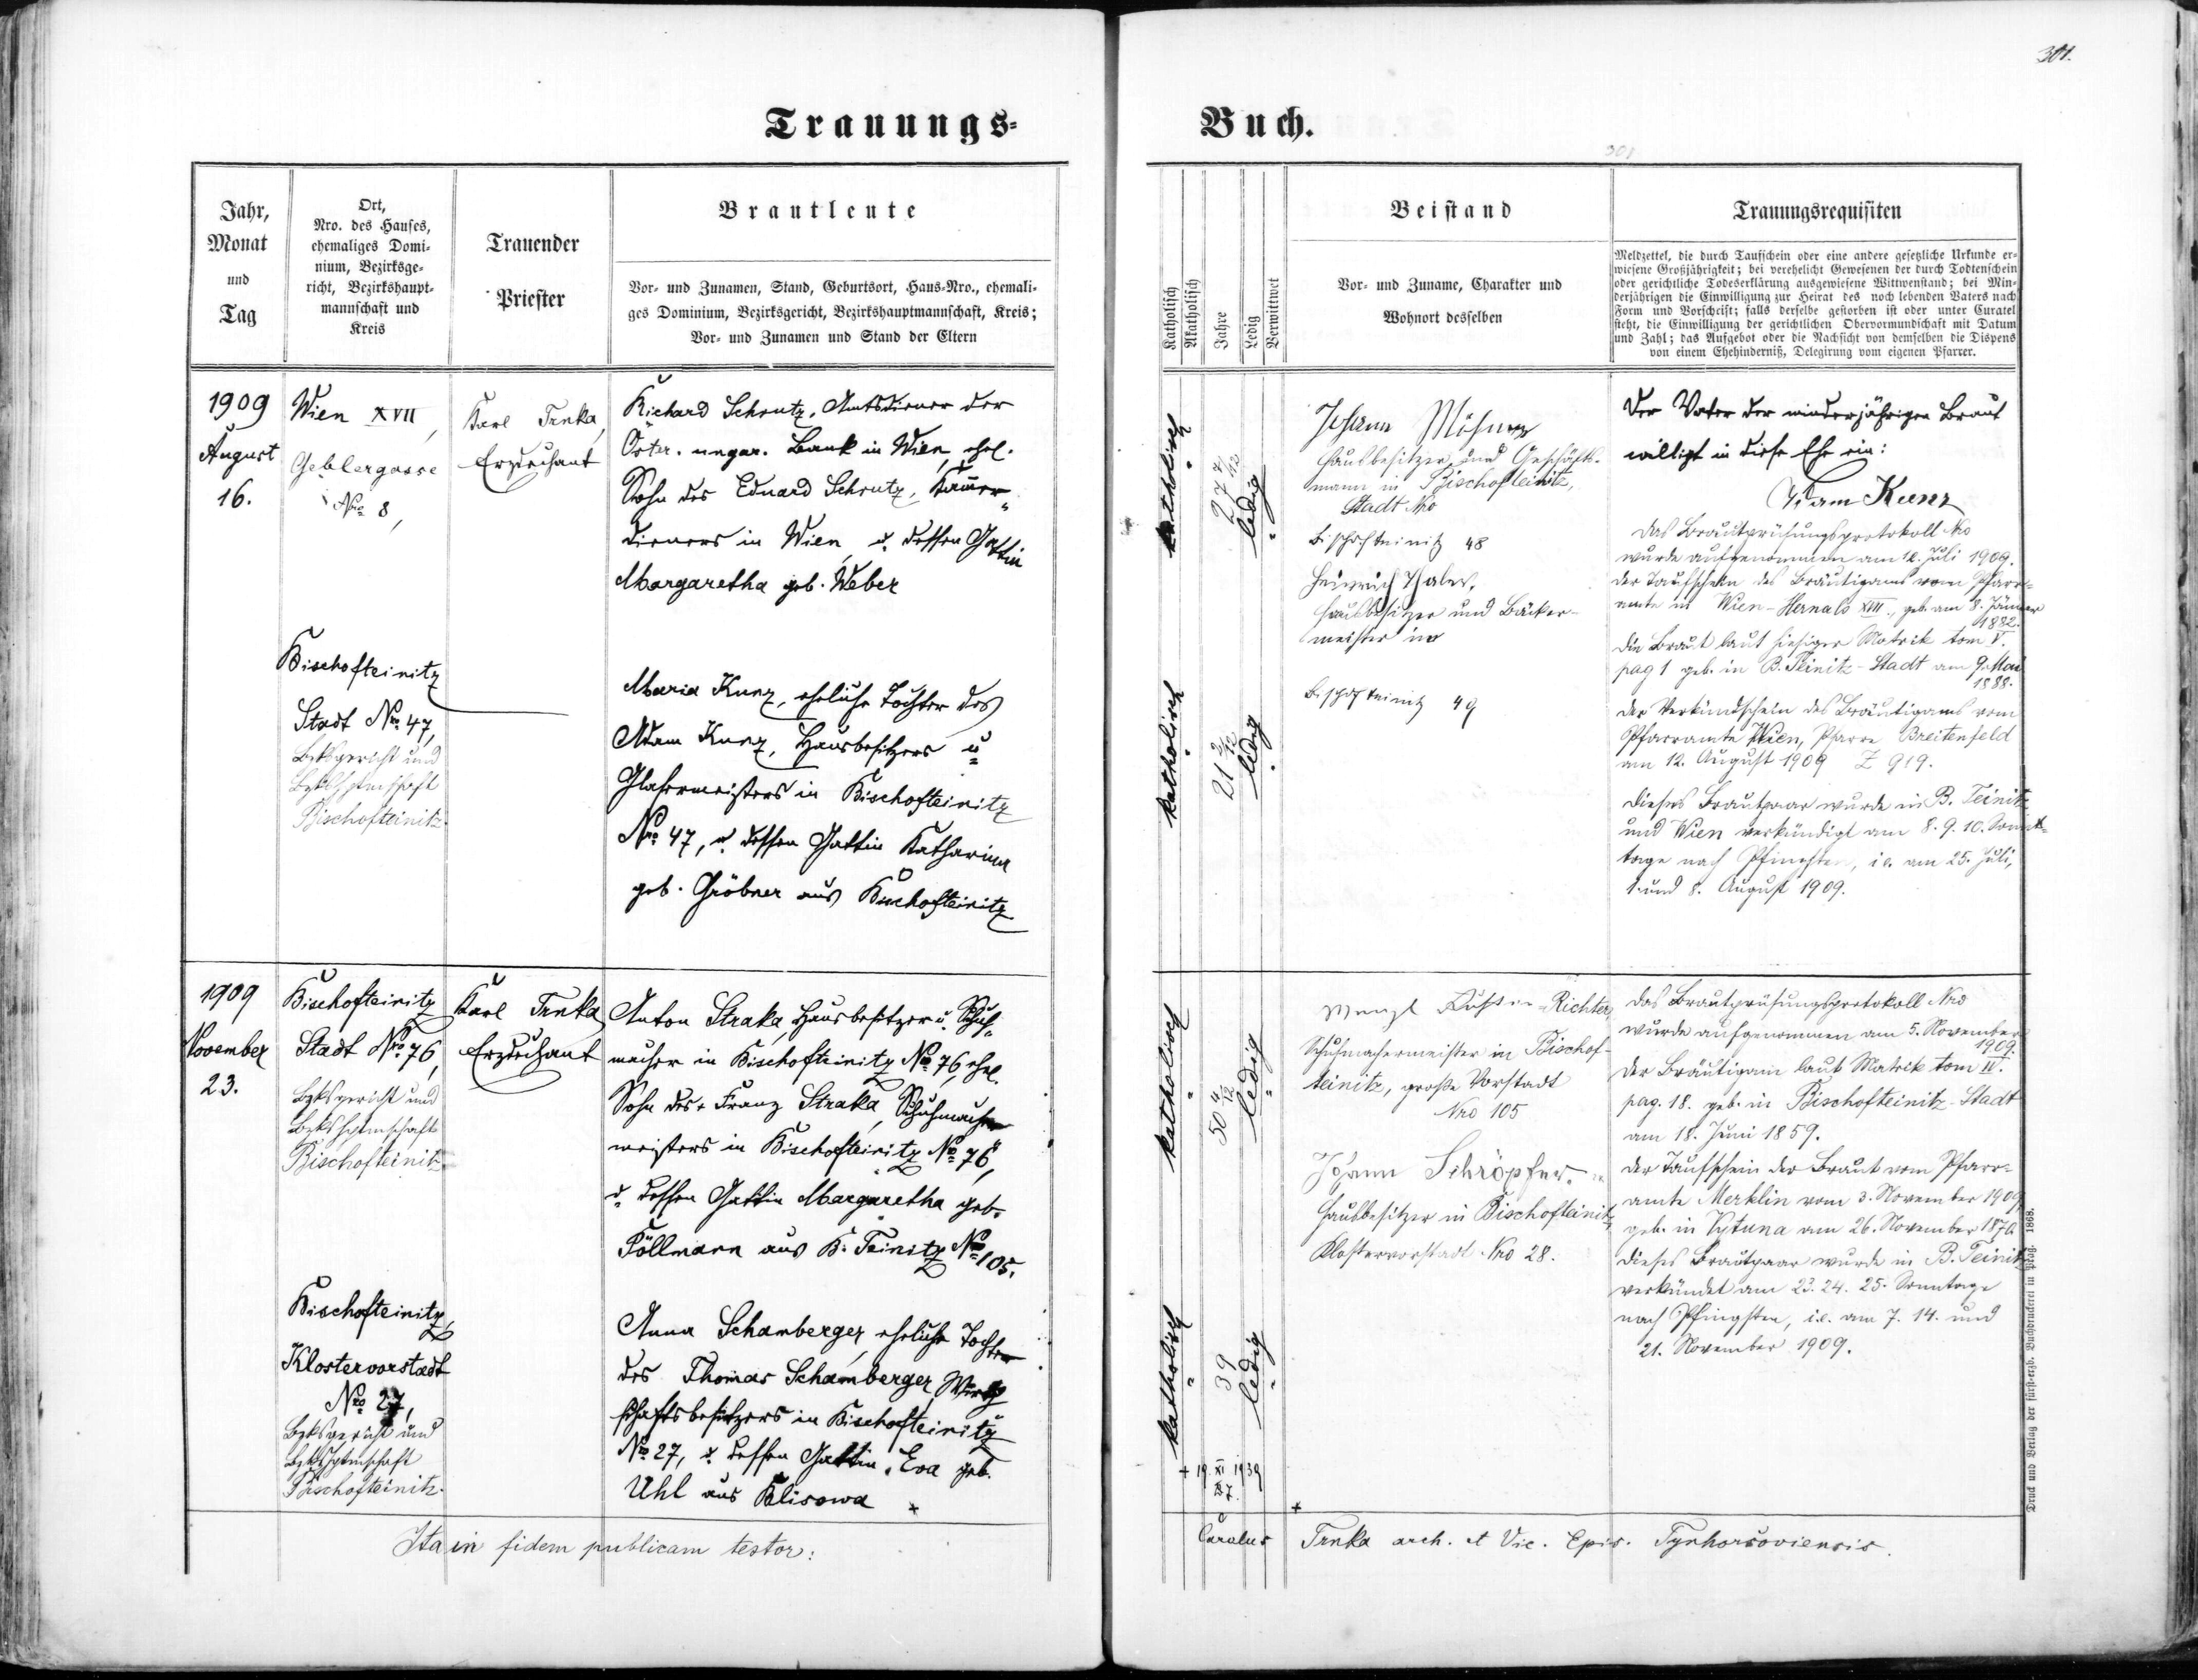 301.
Trauungs-
Buch.
301
Jahr,
Monat
und
Tag
Ort,
Nro. des Hauses,
ehemaliges Domi-
nium, Bezirksge-
richt, Bezirkshaupt-
mannschaft und
Kreis
Trauender
Priester
Brautleute
Vor- und Zunamen, Stand, Geburtsort, Haus-Nro., ehemali-
ges Dominium, Bezirksgericht, Bezirkshauptmannschaft, Kreis;
Vor- und Zunamen und Stand der Eltern
Katholisch
Akatholisch
Jahre
Ledig
Verwittwet
Beistand
Vor- und Zuname, Charakter und
Wohnort desselben
Trauungsrequisiten
Meldzettel, die durch Taufschein oder eine andere gesetzliche Urkunde er-
wiesene Großjährigkeit; bei verehelicht Gewesenen der durch Todtenschein
oder gerichtliche Todeserklärung ausgewiesene Wittwenstand; bei Min-
derjährigen die Einwilligung zur Heirat des noch lebenden Vaters nach
Form und Vorschrift; falls derselbe gestorben ist oder unter Curatel
steht, die Einwilligung der gerichtlichen Obervormundschaft mit Datum
und Zahl; das Aufgebot oder die Nachsicht von demselben die Dispens
von einem Ehehinderniß, Delegirung vom eigenen Pfarrer.
1909
August
16.
Wien XVII,
Geblergasse
Nro 8,
Karl Trnka,
Erzdechant
Richard Schrutz, Amtsdiener der
Öster. ungar. Bank in Wien, ehel.
Sohn des Eduard Schrutz, Kammer-
dieners in Wien, u. dessen Gattin
Margaretha geb. Weber
katholisch
27 7/12
ledig
Bischofteinitz
Stadt Nro 47,
Bzksgericht und
Bzkshptmschaft
Bischofteinitz.
Maria Kunz, eheliche Tochter des
Adam Kunz, Hausbesitzers u.
Glasermeisters in Bischofteinitz
Nro 47, u. dessen Gattin Katharina
geb. Gröbner aus Bischofteinitz
katholisch
21 3/12
ledig
Johann
Hausbesitzer und Geschäfts-
mann in Bischofteinitz,
Stadt Nro
Bischofteinitz 48
Heinrich Thaler,
Hausbesitzer und Bäcker-
meister in
Bischofteinitz 49
Der Vater der minderjährigen Braut
willigt in diese Ehe ein:
Adam Kunz
Das Brautprüfungsprotokoll Nro
wurde aufgenommen am 12. Juli 1909.
Der Taufschein des Bräutigams vom Pfarr-
amte in Wien-Hernals XVII., geb. am 8. Jänner
1882.
Die Braut laut hiesiger Matrik tom V.
pag 1 geb. in B. Teinitz-Stadt am 9. Mai
1888.
Der Verkündschein des Bräutigams vom
Pfarramte Wien, Pfarre Breitenfeld
am 12. August 1909 Z 919.
Dieses Brautpaar wurde in B. Teinitz
und Wien verkündigt am 8. 9. 10. Sonn-
tage nach Pfingsten, i.e. am 25. Juli,
1. und 8. August 1909.
1909
November
23.
Bischofteinitz
Stadt Nro 76,
Bzksgericht und
Bzkshptmschaft
Bischofteinitz
Karl Trnka
Erzdechant
Anton Straka, Hausbesitzer u. Schuh-
macher in Bischofteinitz Nro 76, ehel.
Sohn des + Franz Straka, Schuhmacher-
meisters in Bischofteinitz Nro 76,
u. dessen Gattin Margaretha geb.
Föllmann aus B. Teinitz Nro 105.
katholisch
50 4/12
ledig
Bischofteinitz,
Klostervorstadt
Nro 27,
Bzksgericht und
Bzkshptmschaft
Bischofteinitz.
Anna Schamberger, eheliche Tochter
des Thomas Schamberger, Wirth-
schaftsbesitzers in Bischofteinitz
Nro 27, u. dessen Gattin Eva geb.
Uhl aus Klisowa +
katholisch
39
ledig
+ 19. XI 1939
Wenzl Richter,
Schuhmachermeister in Bischof-
teinitz, große Vorstadt
Nro 105
Johann Schröpfer.
Hausbesitzer in Bischofteinitz
Klostervorstadt Nro 28.
Das Brautprüfungsprotokoll Nro
wurde aufgenommen am 5. November
1909.
Der Bräutigam laut Matrik tom IV.
pag. 18. geb. in Bischofteinitz-Stadt
am 18. Juni 1859.
Der Taufschein der Braut vom Pfarr-
amte Merklin vom 3. November 1909,
geb. in Vytuna am 26. November 1870
Dieses Brautpaar wurde in B. Teinitz
verkündet am 23. 24. 25. Sonntage
nach Pfingsten, i.e. am 7. 14. und
21. November 1909.
Ita in fidem publicam testor:
Carolus Trnka arch. et Vic. Epis. Tynhorsoviensis.
Druck und Verlag der fürst-erzb. Buchdruckerei in Prag. 1868.